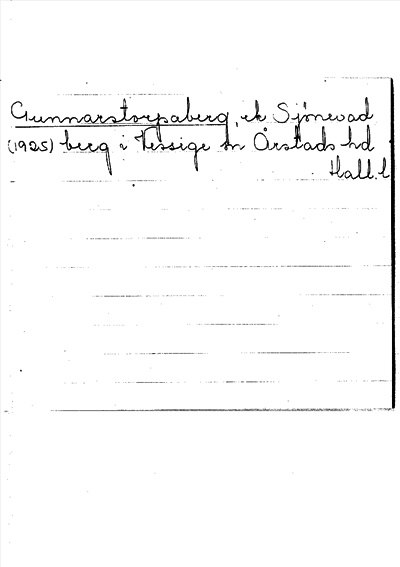 Gunnarstorpaberg, ek Sjönevad
(1925) berg i Vessige sn Årstads hd
Hall. l